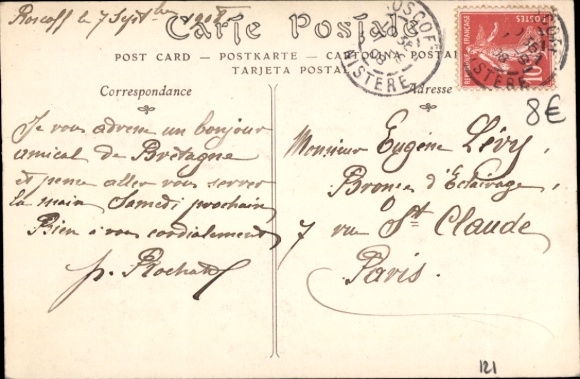 Roscoff le 7 Septbre 1908
Carte Postale
POST CARD — POSTKARTE — CARTOLINA POSTAL
TARJETA POSTAL
ROSCOFF
FINISTERE
POSTES
REPUBLIQUE FRANÇAISE
10
8€
Correspondance
Je vous adresse un bonjour
amical de Bretagne
et pense aller vous serrer
la main Samedi prochain
Bien à vous cordialement
p. Rochat
Adresse
Monsieur Eugène Lévy,
Bronze d'Eclairage,
7 rue St Claude
Paris.
121